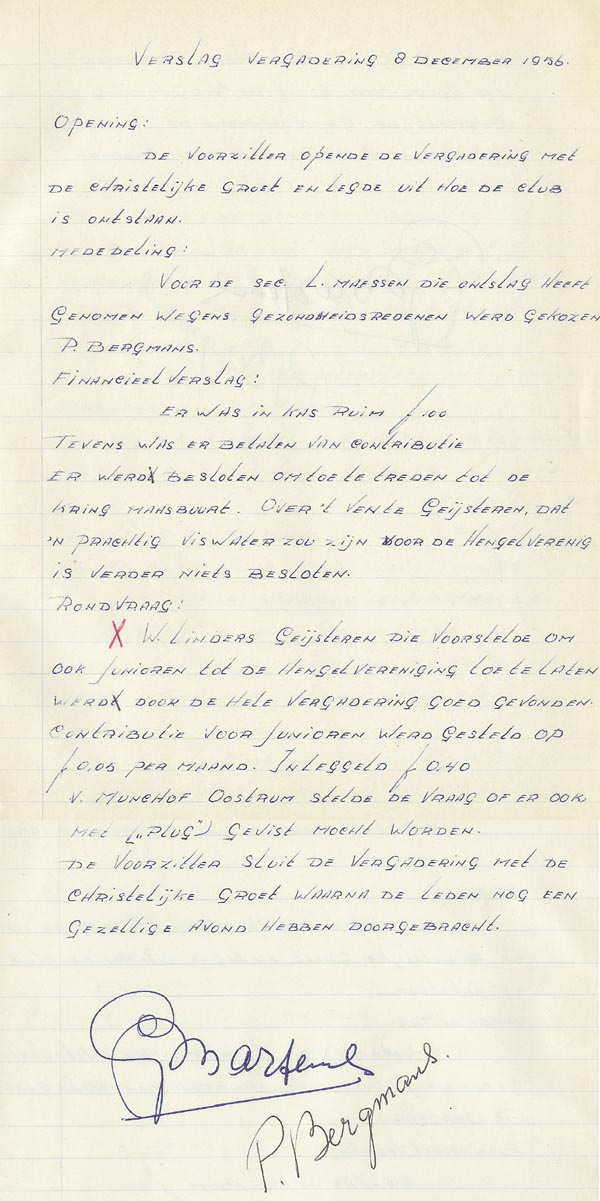 VERSLAG VERGADERING 8 DECEMBER 1956.
OPENING:
DE VOORZITTER OPENDE DE VERGADERING MET
DE CHRISTELIJKE GROET EN LEGDE UIT HOE DE CLUB
IS ONTSTAAN.
MEDEDELING:
VOOR DE SEC. L. MAESSEN DIE ONTSLAG HEEFT
GENOMEN WEGENS GEZONDHEIDSREDENEN WERD GEKOZEN
P. BERGMANS.
FINANCIEEL VERSLAG:
ER WAS IN KAS RUIM ƒ 100
TEVENS WAS ER BETALEN VAN CONTRIBUTIE
ER WERD BESLOTEN OM TOE TE TREDEN TOT DE
KRING MAASBUURT. OVER 'T VEN TE GEIJSTEREN, DAT
'N PRACHTIG VISWATER ZOU ZIJN VOOR DE HENGELVERENIG
IS VERDER NIETS BESLOTEN.
RONDVRAAG:
X W. LINDERS GEIJSTEREN DIE VOORSTELDE OM
OOK JUNIOREN TOT DE HENGELVERENIGING TOE TE LATEN
WERD DOOR DE HELE VERGADERING GOED GEVONDEN.
CONTRIBUTIE VOOR JUNIOREN WERD GESTELD OP
ƒ 0,05 PER MAAND. INLEGGELD ƒ 0,40
V. MUNCHOF OOSTRUM STELDE DE VRAAG OF ER OOK
MET („PLUG") GEVIST MOCHT WORDEN.
DE VOORZITTER SLUIT DE VERGADERING MET DE
CHRISTELIJKE GROET WAARNA DE LEDEN NOG EEN
GEZELLIGE AVOND HEBBEN DOORGEBRACHT.
G Martens
P. Bergmans.